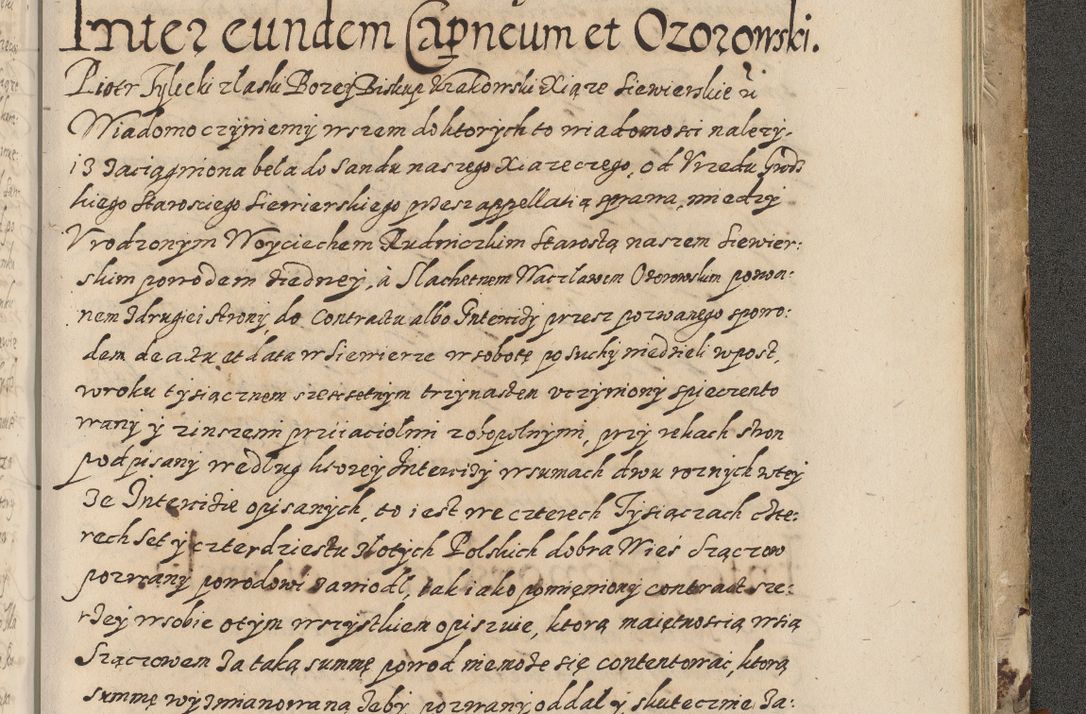 Inter eundem Capneum et Ozorowski.
Piotr Tylecki z laski Bozey Biskup Krakowski Xiąze Siewierskie ii
Wiadomo czyniemy wszem do ktorych to wiadomosci nalezy,
iz zaciągniona beła do Sandu naszego Xiazeczego, od Vrzedu Grodz
kiego Starosciego Siewierskiego przesz appellatią sprawa, miedzy
Vrodzonym Woyciechem Rudniczkim Starostą naszem Siewier:
skim powodem z iedney, à Slachetnem Waczławem Ozorowskim pozwa:
nem z drugiei strony, do Contractu albo Intercizy przesz pozwanego s powo:
dem de actu et data w Siewierze w sobotę po suchy niedzieli w post,
w roku tysiącznem szescsetnym trzynastem vczyniony spieczento
wany y z inszemi prziiaciolmi z obopolnymi, przy rekach stron
podpisany według ktorey Intercizy w sumach dwu roznych w tey
ze Intercizie opisanych, to iest we czterech Tysiączach czte:
rech set y czterdziestu złotych Polskich dobra Wieś Szączow
pozwany powodowi zawiodl, tak iako pomieniony contract sze:
rzey w sobie o tym wszystkiem opiszuie, ktorą maiętnoscią wsią
Szączowem za taką summę powod nie może się contentowac, ktorą
summę wyzmianowaną żeby pozwany oddal y skutecznie za: